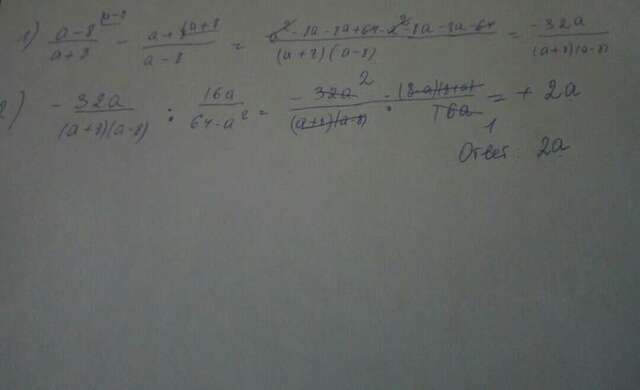 1) (a-8)/(a+8) - (a+8)/(a-8) = (a² - 8a - 8a + 64 - a² - 8a - 8a - 64)/((a+8)(a-8)) = (-32a)/((a+8)(a-8))
2) (-32a)/((a+8)(a-8)) : (16a)/(64-a²) = (-32a)/((a+8)(a-8)) · ((8-a)(8+a))/(16a) = + 2a
Ответ: 2a